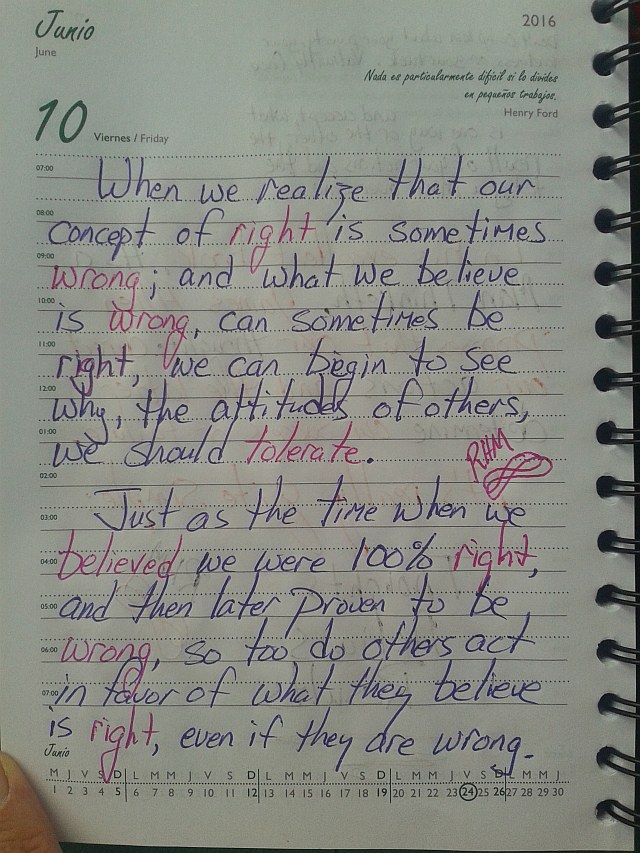 Junio
June
2016
Nada es particularmente difícil si lo divides
en pequeños trabajos.
Henry Ford
10 Viernes / Friday
07:00 When we realize that our
08:00 concept of right is sometimes
09:00 wrong; and what we believe
10:00 is wrong, can sometimes be
11:00 right, we can begin to see
12:00 why, the attitudes of others,
01:00 we should tolerate.
RHM
02:00
03:00 Just as the time when we
04:00 believed we were 100% right,
05:00 and then later proven to be
06:00 wrong, so too do others act
07:00 in favor of what they believe
is right, even if they are wrong.
Junio
M J V S D L M M J V S D L M M J V S D L M M J V S D L M M J
1 2 3 4 5 6 7 8 9 10 11 12 13 14 15 16 17 18 19 20 21 22 23 24 25 26 27 28 29 30